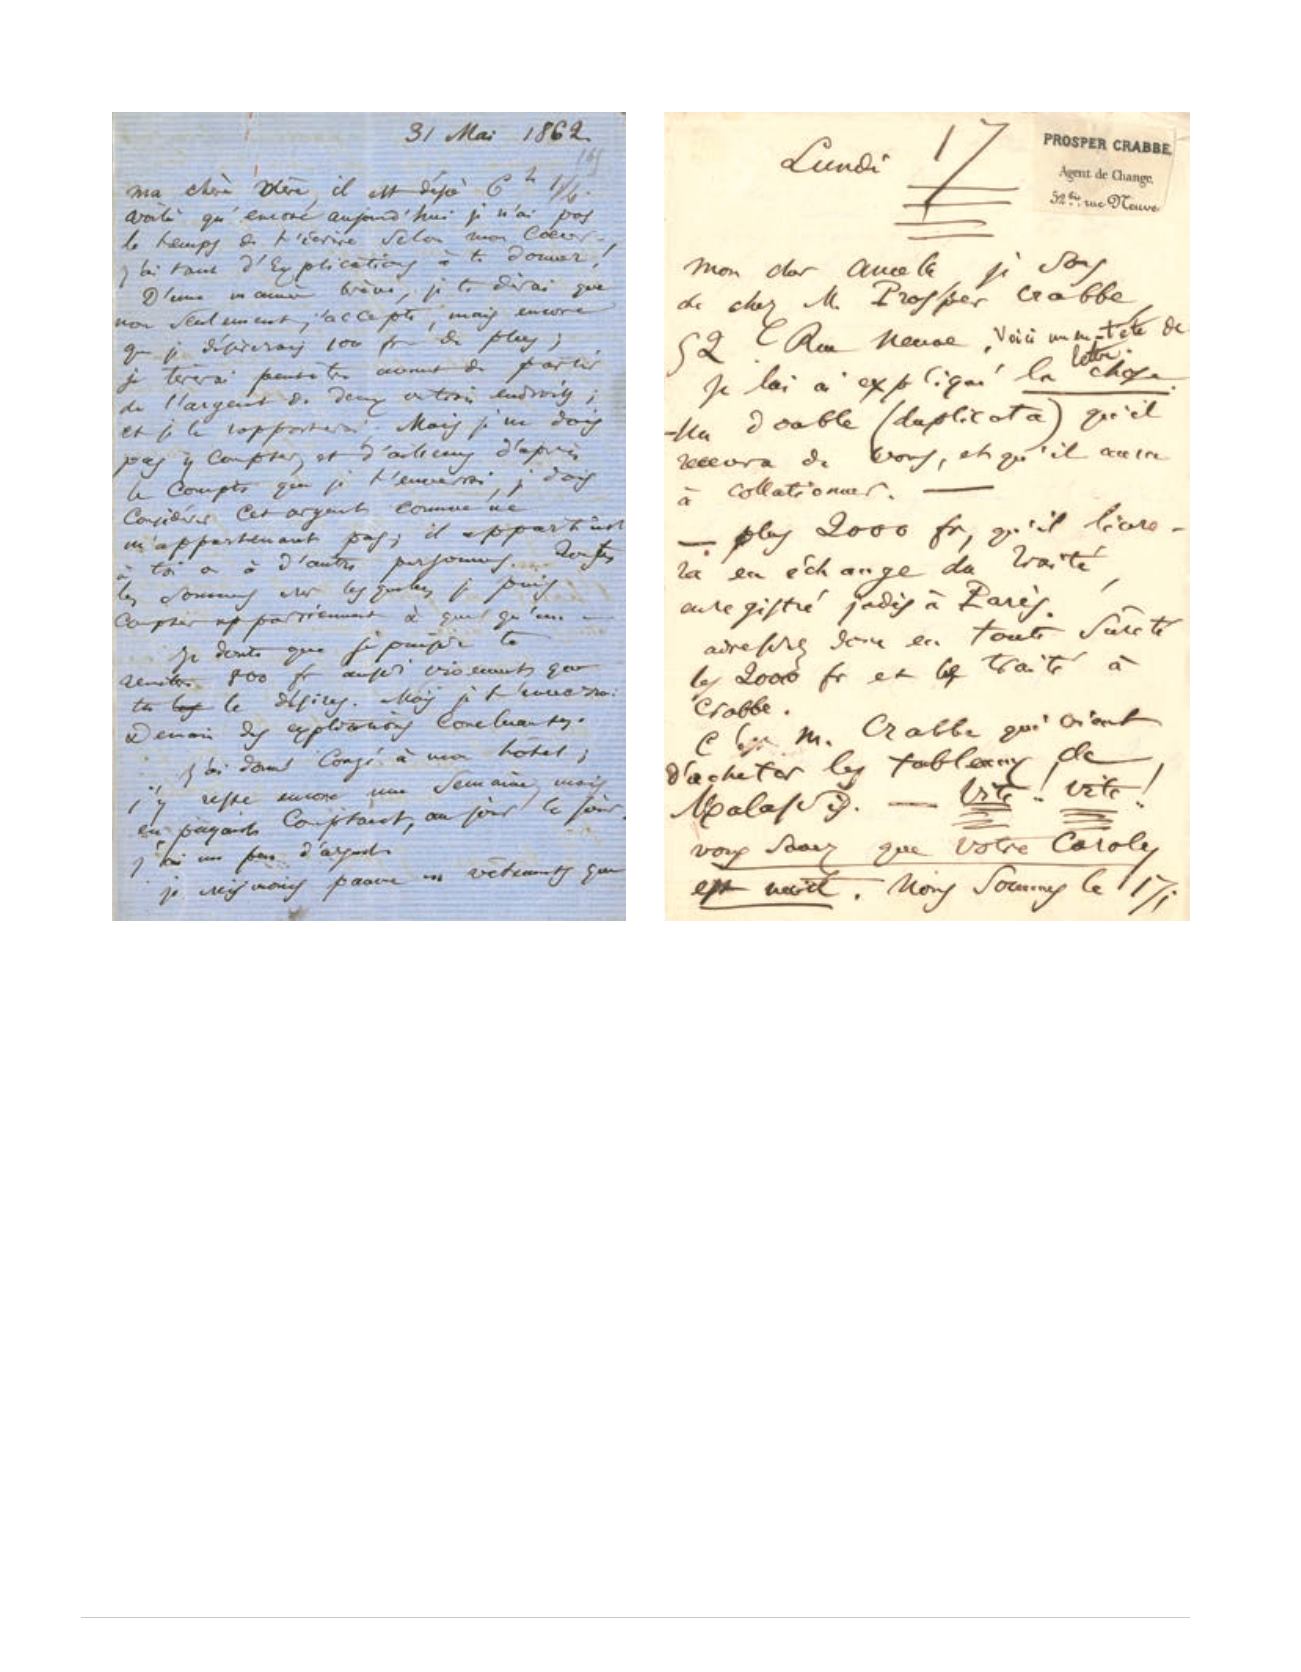 31 Mai 1862.
ma chère Mère, il est déjà 6 h 1/2.
voilà qu'encore aujourd'hui je n'ai pas
le temps de t'écrire selon mon Coeur.
j'ai tant d'Explications à te donner!
D'une manière brève, je te dirai que
non seulement j'accepte, mais encore
que je désirerais 100 fr de plus;
je tirerai peut-être avant de partir
de l'argent de deux ou trois endroits;
et je le rapporterai. Mais je ne dois
pas y compter, et d'ailleurs d'après
le Compte que je t'enverrai, je dois
Considérer cet argent comme ne
m'appartenant pas; il appartient
à toi ou à d'autres personnes. Toutes
les Sommes sur lesquelles je puis
Compter appartiennent à quelqu'un —
Je doute que je puisse te
rendre 800 fr aussi vivement que
tu le désires. Mais je t'enverrai
Demain des explications Concluantes.
J'ai donné Congé à mon hôtel;
j'y reste encore une Semaine, mais
en payant Comptant, au jour le jour.
j'ai un peu d'argent.
je suis pauvre en vêtements que
Lundi 17
PROSPER CRABBE,
Agent de Change,
52 bis, rue Neuve
mon cher Ancelle, je sors
de chez M. Prosper Crabbe,
52 Rue Neuve. Voici un en-tête de
lettre.
Je lui ai expliqué la chose.
Un double (duplicata) qu'il
recevra de vous, et qu'il aura
à collationner. —
— plus 2000 fr, qu'il livre-
ra en échange du traité,
enregistré jadis à Paris.
adressez donc en toute Sûreté
les 2000 fr et le traité à
Crabbe.
C'est M. Crabbe qui vient
d'acheter les tableaux de
Malassis. — Vite! vite!
vous savez que votre Caroly
est averti. Nous Sommes le 17